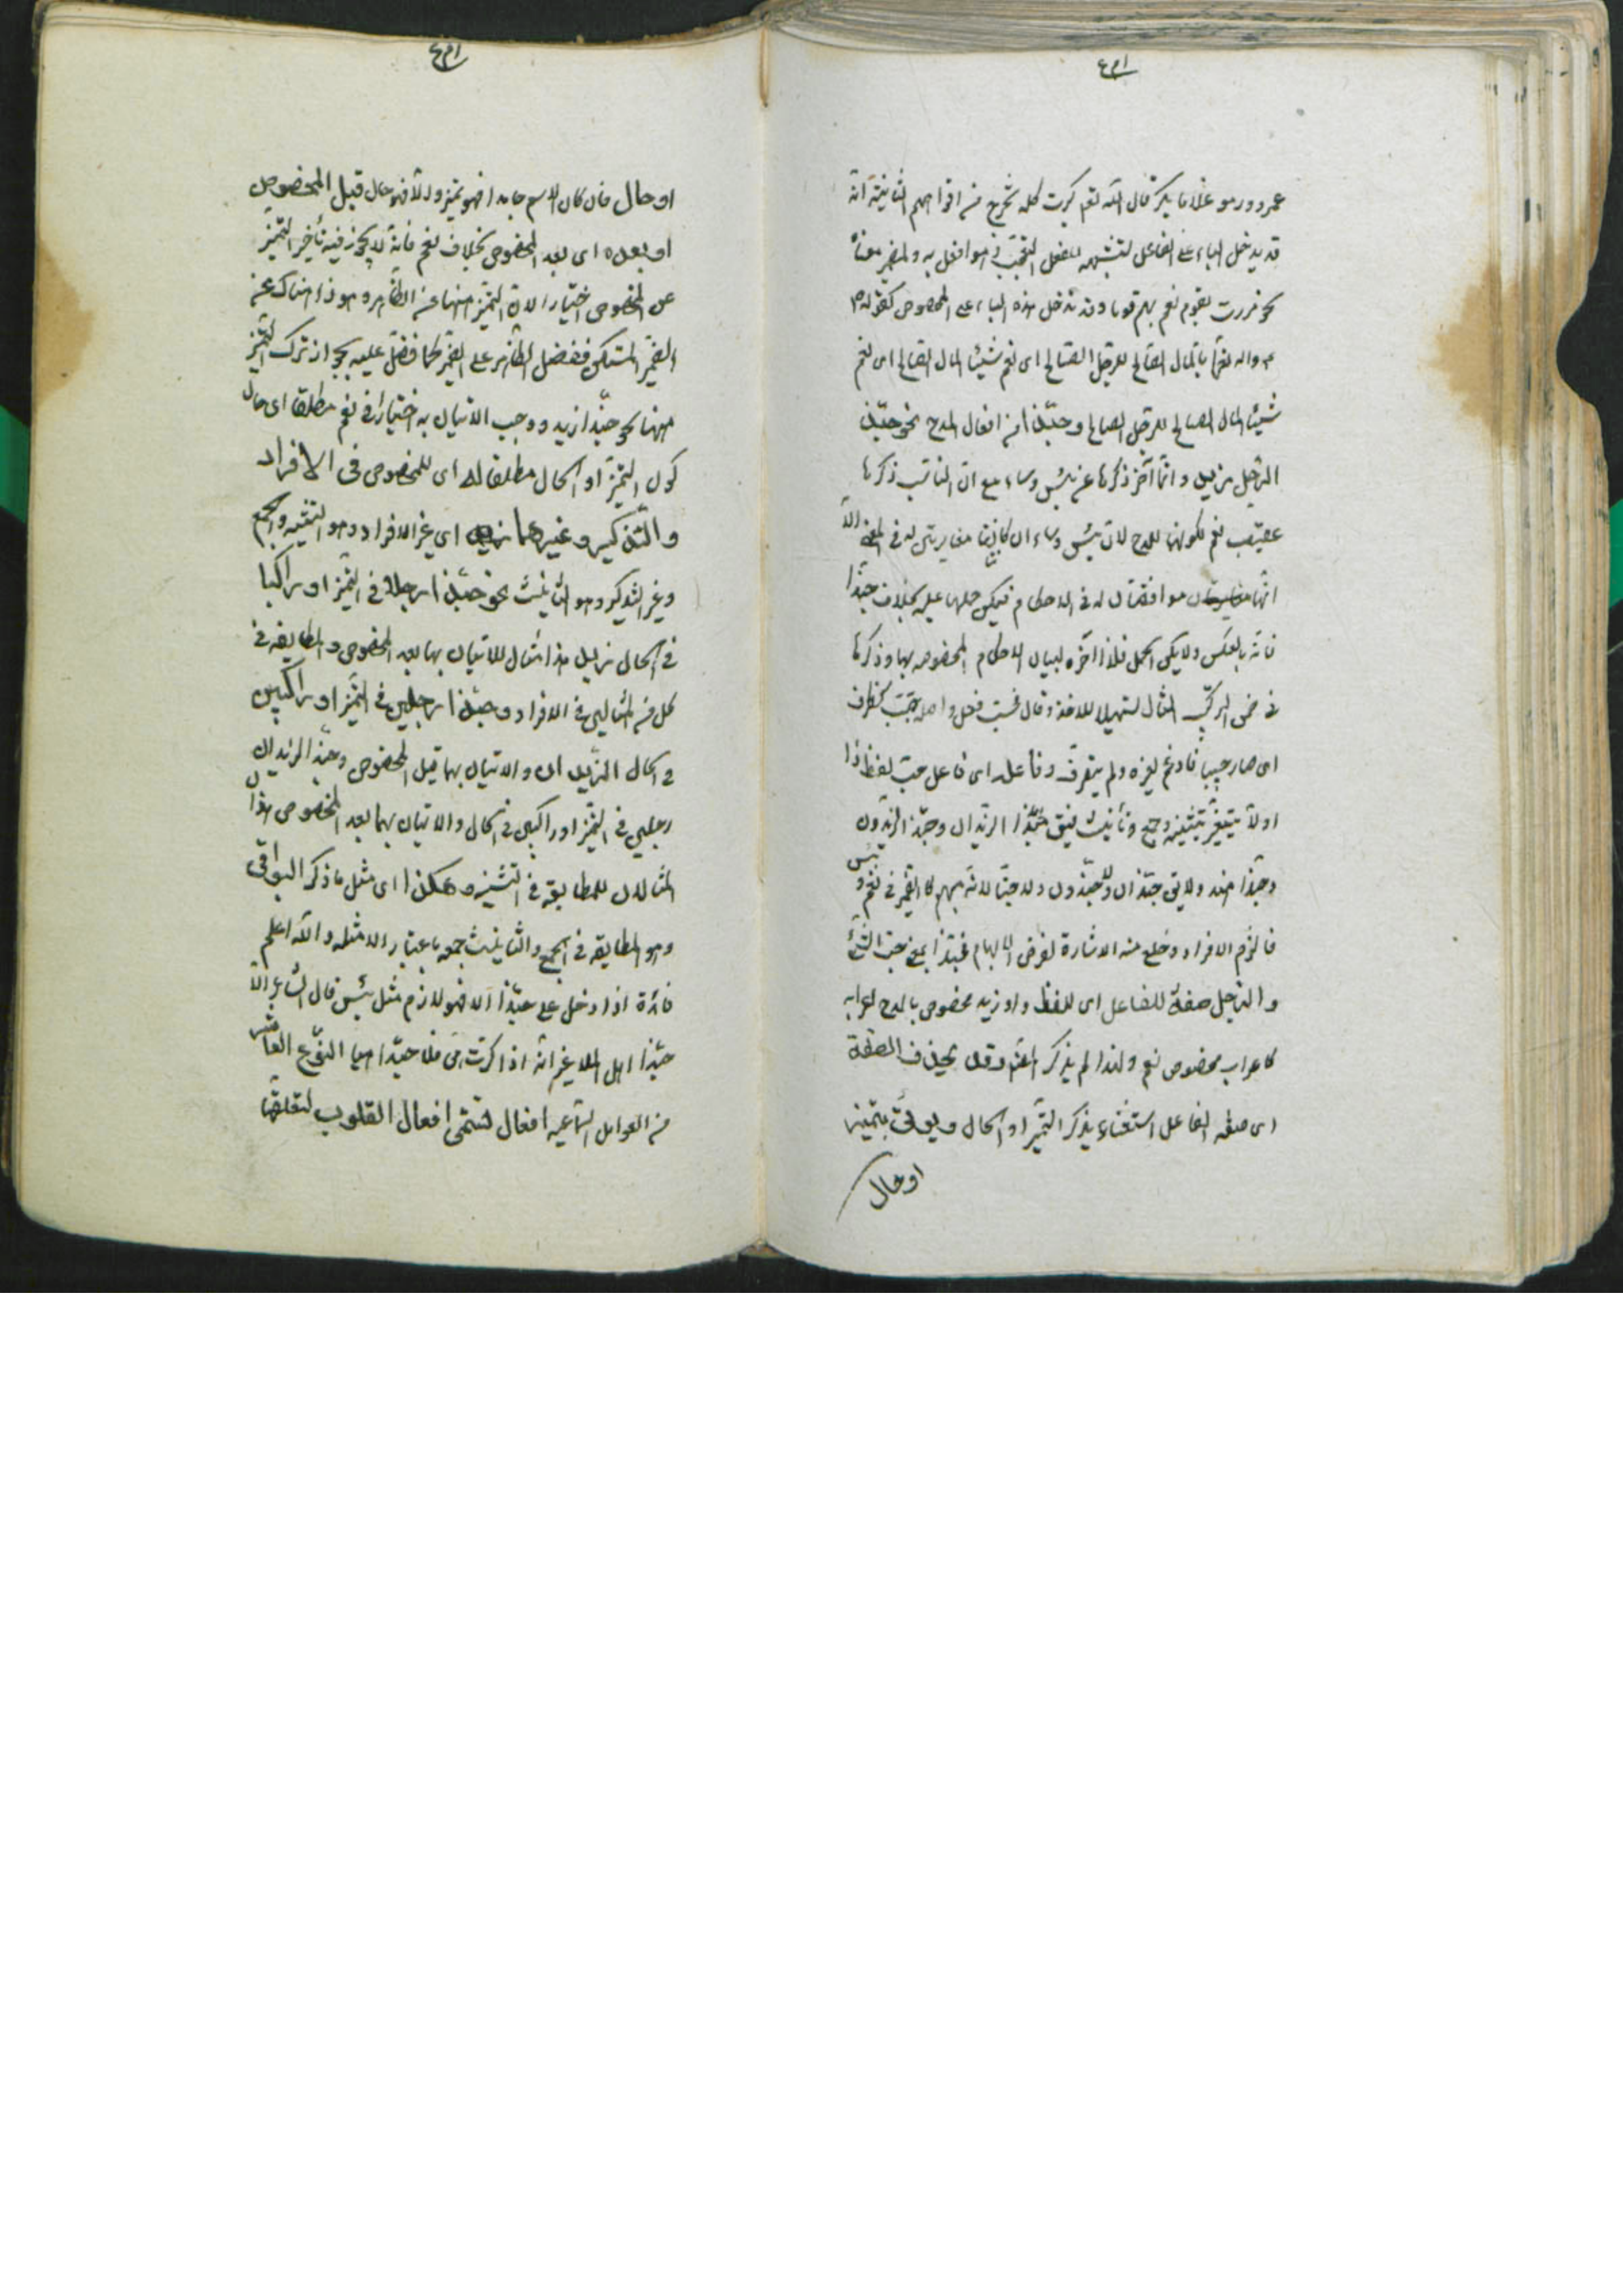 عمرو وردو غلاما بكر قال الله تعم كبرت كلمة تخرج من افواههم الثانية انه
قد يدخل الباء على الفاعل لتشبهه بفعل التعجب في هو افعل به ولمضير معناه
نحو مررت بقوم نعم بهم قوما وقد تدخل هذه الباء على المخصوص كقوله ص
واله نعما بالمال الصالح للرجل الصالح اى نعم شيئا المال الصالح اى نعم
شيئا المال الصالح للرجل الصالح وحبذا من افعال المدح نحو حبذا
الرجل زيد وانما آخر ذكرها عن بئس وساء مع ان المناسب ذكرها
عقيب نعم لكونها للمدح لان بئس وساء ان كانتا مغايرتين له في المعنى الا
انهما موافقتان له في الاحكام فيمكن حملهما عليه بخلاف حبذا
فانه بالعكس ولا يمكن الحمل فلذا آخره لبيان الاحكام المخصوصه بها وذكرها
في ضمن المركب المثال لتسهيلا للاخذ وقال فحب فعل واصله حبب كظرف
اى صار حبيبا فادغم لغيره ولم يتصرف وفاعله اى فاعل حب لفظ ذا
اولا يتغير بتثنيه وجمع وتأنيث فيق حبذا الزيدان وحبذا الزيدون
وحبذا هند ولا يق حبذان وحبذون ولا حبتا لانه مبهم كالضمير في نعم وبئس
فالزم الافراد وخلع منه الاشارة لغرض الابهام فحبذا بمعنى حب الشئ
والرجل صفة للفاعل اى للفظ ذا وزيد مخصوص بالمدح اعرابه
كاعراب مخصوص نعم ولهذا لم يذكر المصنف وقد يحذف الصفة
اى صفة الفاعل استغناء بذكر التميز او الحال ويؤتى بتميز
او حال
او حال فان كان الاسم جامدا فهو تميز والا فهو حال قبل المخصوص
او بعده اى بعد المخصوص بخلاف نعم فانه لا يجوز فيه تأخير التميز
عن المخصوص اختيارا لان التميز هنا عن الظاهر وهو ذا وهناك عن
الضمير المستكن ففضل الظاهر على الضمير كما فضل عليه بجواز ترك التميز
ههنا نحو حبذا زيد ووجب الاتيان به اختيارا في نعم مطلقا اى حال
كون التميز او الحال مطلقا له اى للمخصوص فى الافراد
والتذكير وغيرهما اى غير الافراد وهو التثنيه والجمع
وغير التذكير وهو التأنيث نحو حبذا رجلا في التميز او راكبا
في الحال زيد هذا مثال للاتيان بهما بعد المخصوص والمطابقه في
كل من المثالين في الافراد وحبذا رجلين في التميز او راكبين
في الحال الزيدان والاتيان بهما قبل المخصوص وحبذا الزيدان
رجلين في التميز او راكبين في الحال والاتيان بهما بعد المخصوص هذان
المثالان للمطابقه في التثنيه وهكذا اى مثل ما ذكر البواقى
وهو المطابقه في الجمع والتأنيث جمعه باعتبار الامثله والله اعلم
فائدة اذا دخل على حبذا لا فهو لازم مثل بئس قال الشاعر الا
حبذا اهل الملا غير انه اذا كرت مى فلا حبذا هيا النوع العاشر
من العوامل السماعيه افعال تسمى افعال القلوب لتعلقها